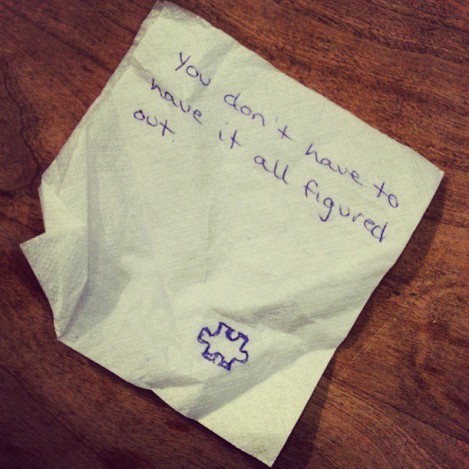 You don't have to
have it all figured
out.